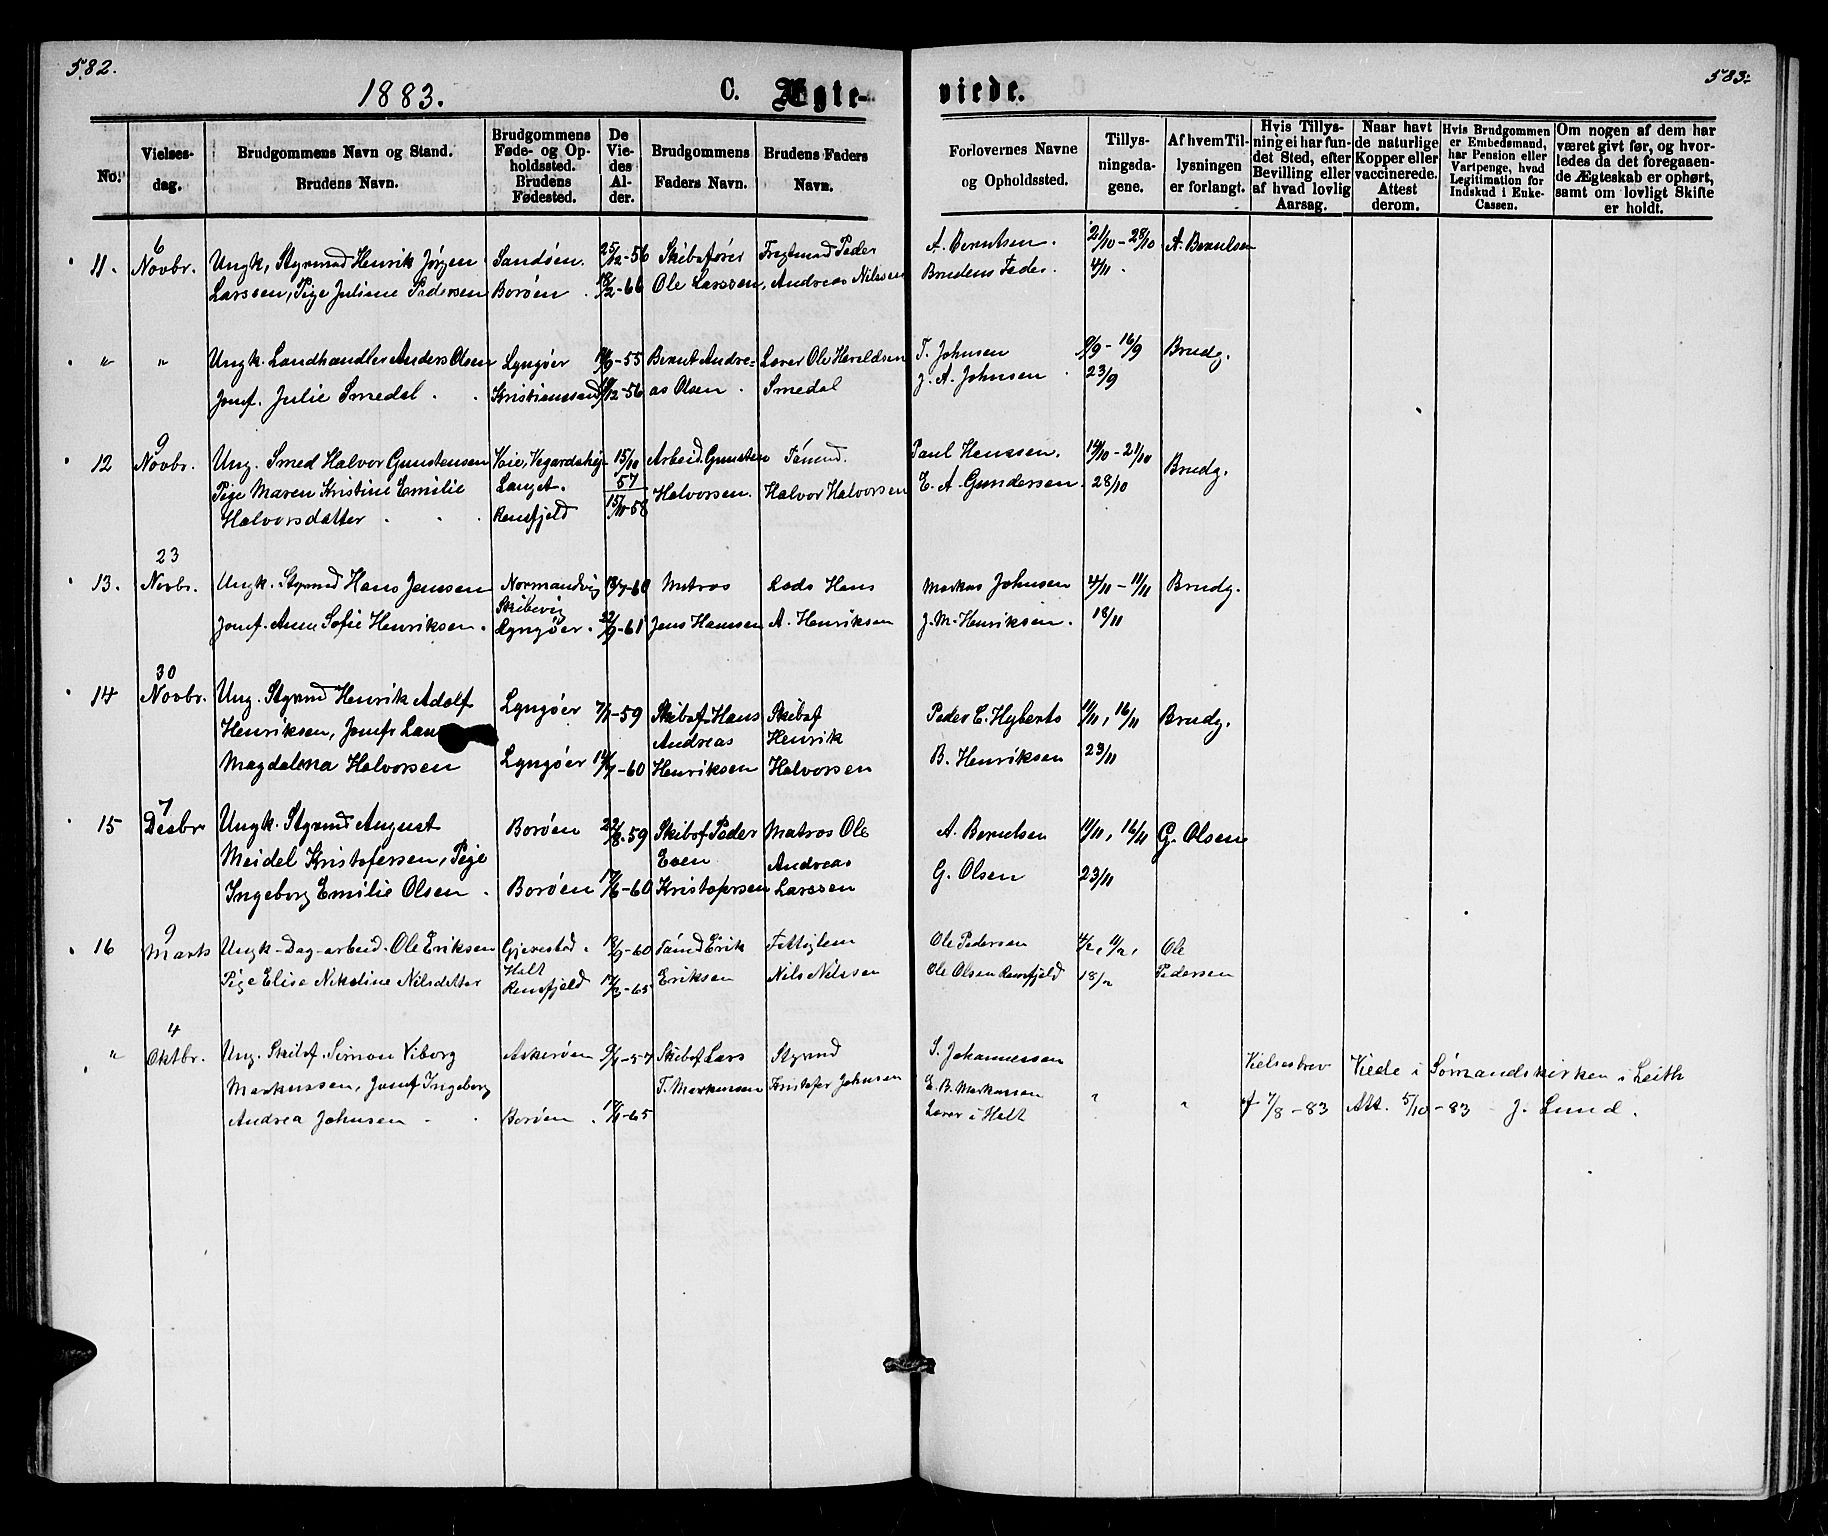 582.
1883.
C. Ægte-
No.
Vielses-
dag.
Brudgommens Navn og Stand.
Brudens Navn.
Brudgommens
Føde- og Op-
holdssted.
Brudens
Fødested.
De
Vie-
des
Al-
der.
Brudgommens
Faders Navn.
Brudens Faders
Navn.
11.
6
Novbr.
Ungk. Styrmd Henrik Jørgen
Larssen, Pige Juliane Pedersen
Sandøen.
Borøen.
25/12-56
18/2-66
Skibsfører
Ole Larssen,
Fragtmd Peder
Andreas Nilssen
"
"
Ungk. Landhandler Anders Olsen
Jomf. Julie Smedal
Lyngøer
Kristianssand
-55
/12-56
Bernt Andre-
as Olsen
Lærer Ole Haraldsen
Smedal
12
9
Novbr.
Ung. Smed Halvor Gunstensen
Pige Maren Kristine Emilie
Halvorsdatter
Vaie, Vegardshej
Langet.
Rensfjeld
15/10
57
15/11-58
Arbeid. Gunsten
Halvorsen.
Sømnd.
Halvor Halvorsen
13.
23
Novbr.
Ungk. Styrmd Hans Jensen
Jomf. Anne Sofie Henriksen.
Normandvig
Skibsvig
Lyngøer.
13/7-60
22/9-61
Matros
Jens Hanssen
Lods Hans
A. Henriksen
14
30
Novbr.
Ung. Styrmd Henrik Adolf
Henriksen, Jomfr
Magdalena Halvorsen
Lyngøer
Lyngøer
7/7-59
14/7-60
Skibsf. Hans
Andreas
Henriksen
Skibsf
Henrik
Halvorsen
15
7
Desbr
Ungk. Styrmd August
Meidel Kristofersen, Pige
Ingeborg Emilie Olsen
Borøen
Borøen
22/8-59
17/6-60
Skibsf. Peder
Even
Kristofersen
Matros Ole
Andreas
Larssen
16
9
Marts
Ungk. Dag-arbeid. Ole Eriksen
Pige Elise Nikoline Nilsdatter
Gjerestad.
Holt
Rensfjeld
18/9-60
17/3-65
Sømd Erik
Eriksen
Fattiglem
Nils Nilssen
"
4
Oktbr.
Ung. Skibsf. Simon Viborg
Markussen, Jomf Ingeborg
Andrea Johnsen
Askerøen
Borøen
-57
17/1-65
Skibsf Lars
T. Markussen
Styrmd
Kristofer Johnsen
583.
viede.
Forlovernes Navne
og Opholdssted.
Tillys-
ningsda-
gene.
Af hvem Til-
lysningen
er forlangt.
Hvis Tillys-
ning ei har fun-
det Sted, efter
Bevilling eller
af hvad lovlig
Aarsag.
Naar havt
de naturlige
Kopper eller
vaccinerede.
Attest
derom.
Hvis Brudgommen
er Embedsmand,
har Pension eller
Vartpenge, hvad
Legitimation for
Indskud i Enke-
Cassen.
Om nogen af dem har
været givt før, og hvor-
ledes da det foregaaen-
de Ægteskab er ophørt,
samt om lovligt Skifte
er holdt.
A. Berntsen.
Brudens Fader.
21/10-28/10
4/11.
A. Berntsen
T. Johnsen
J. A. Johnsen
9/9-16/9
23/9
Brudg.
Paul Hanssen.
E. A. Gundersen
14/10-21/10
28/10
Brudg.
Markus Johnsen
J. M. Henriksen.
4/11-11/11
18/11
Brudg.
Peder C. Hyberts
B. Henriksen
11/11, 16/11
23/11
Brudg.
A. Berntsen
G. Olsen
11/11, 16/11
23/11
G. Olsen
Ole Pedersen
Ole Olsen Rensfjeld
4/2, 11/2,
18/2
Ole
Pedersen
S. Johannessen
E. B. Markussen
Lærer i Holt
"
"
Vielsesbrev
af 7/8-83
Viede i Sømandskirken i Leith
Att. 5/10-83 J. Lund.